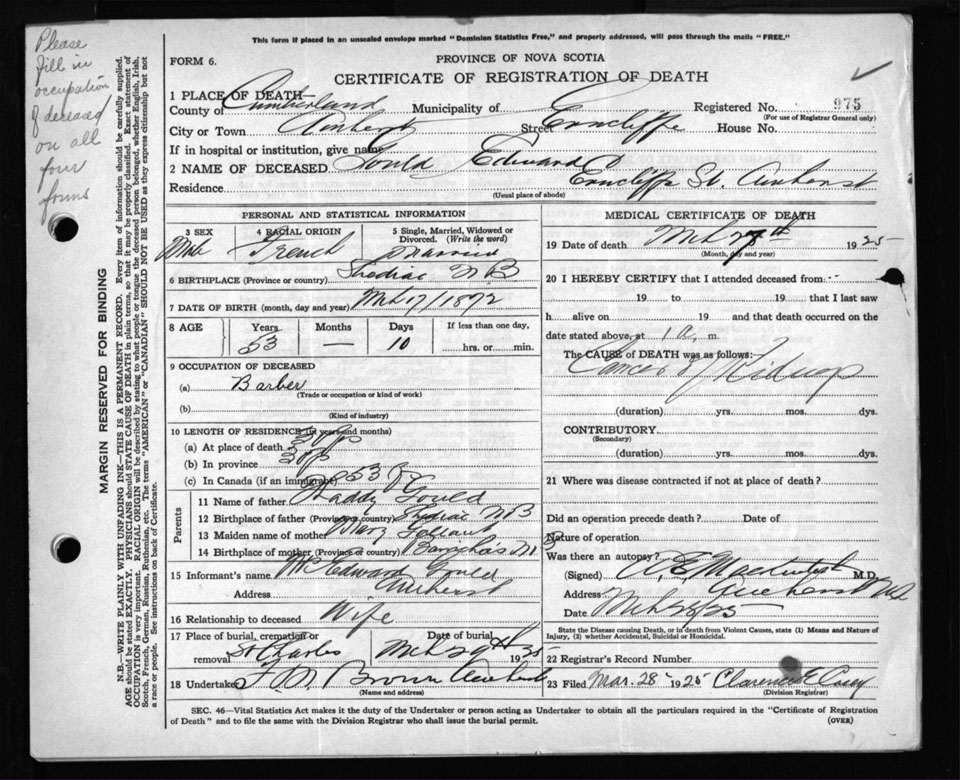 This form if placed in an unsealed envelope marked "Dominion Statistics Free," and properly addressed, will pass through the mails "FREE."
Please
fill in
occupation
of deceased
on all
four
forms
MARGIN RESERVED FOR BINDING
N.B.—WRITE PLAINLY WITH UNFADING INK—THIS IS A PERMANENT RECORD. Every item of information should be carefully supplied.
AGE should be stated EXACTLY. PHYSICIANS should STATE CAUSE OF DEATH in plain terms, so that it may be properly classified. Exact statement of
OCCUPATION is very important. RACIAL ORIGIN will be described by stating to what people or tongue the deceased person belonged, whether English, Irish,
Scotch, French, German, Russian, Ruthenian, etc. The terms "AMERICAN" or "CANADIAN" SHOULD NOT BE USED as they express citizenship but not
a race or people. See instructions on back of Certificate.
FORM 6.
PROVINCE OF NOVA SCOTIA
CERTIFICATE OF REGISTRATION OF DEATH
1 PLACE OF DEATH—
County of Cumberland Municipality of Registered No. 975
(For use of Registrar General only)
City or Town Amherst Street Erncliffe House No.
If in hospital or institution, give name
2 NAME OF DECEASED Gould Edward
Residence Erncliffe St. Amherst
(Usual place of abode)
PERSONAL AND STATISTICAL INFORMATION
3 SEX 4 RACIAL ORIGIN 5 Single, Married, Widowed or
Divorced. (Write the word)
Male French Married
6 BIRTHPLACE (Province or country) Shediac N B
7 DATE OF BIRTH (month, day and year) Mch 17/1872
8 AGE Years Months Days If less than one day,
53 — 10 hrs. or min.
9 OCCUPATION OF DECEASED
(a) Barber
(Trade or occupation or kind of work)
(b)
(Kind of industry)
10 LENGTH OF RESIDENCE (in years and months)
(a) At place of death
(b) In province
(c) In Canada (if an immigrant) 53
Parents
11 Name of father Thaddy Gould
12 Birthplace of father (Province or country) Shediac N B
13 Maiden name of mother Mary
14 Birthplace of mother (Province or country)
15 Informant's name Mrs Edward Gould
Address Amherst
16 Relationship to deceased Wife
17 Place of burial, cremation or Date of burial
removal St Charles Mch 29th 1925
18 Undertaker Brown Amherst
(Name and address)
MEDICAL CERTIFICATE OF DEATH
19 Date of death Mch 27th 1925
(Month, day and year)
20 I HEREBY CERTIFY that I attended deceased from
19 to 19 that I last saw
h alive on 19 and that death occurred on the
date stated above, at 1 a. m.
The CAUSE of DEATH was as follows:
Cancer of Kidneys
(duration) yrs. mos. dys.
CONTRIBUTORY
(Secondary)
(duration) yrs. mos. dys.
21 Where was disease contracted if not at place of death?
Did an operation precede death? Date of
Nature of operation
Was there an autopsy?
(Signed) M.D.
Address Amherst N.S.
Date Mch 28/25
State the Disease causing Death, or in death from Violent Causes, state (1) Means and Nature of
Injury, (2) whether Accidental, Suicidal or Homicidal.
22 Registrar's Record Number
23 Filed Mar. 28 1925 Clarence E Casey
(Division Registrar)
SEC. 46—Vital Statistics Act makes it the duty of the Undertaker or person acting as Undertaker to obtain all the particulars required in the "Certificate of Registration
of Death" and to file the same with the Division Registrar who shall issue the burial permit. (OVER)